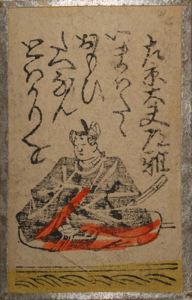 左京大夫道雅
いまはたゝ
おもひ
たえなん
とはかりを